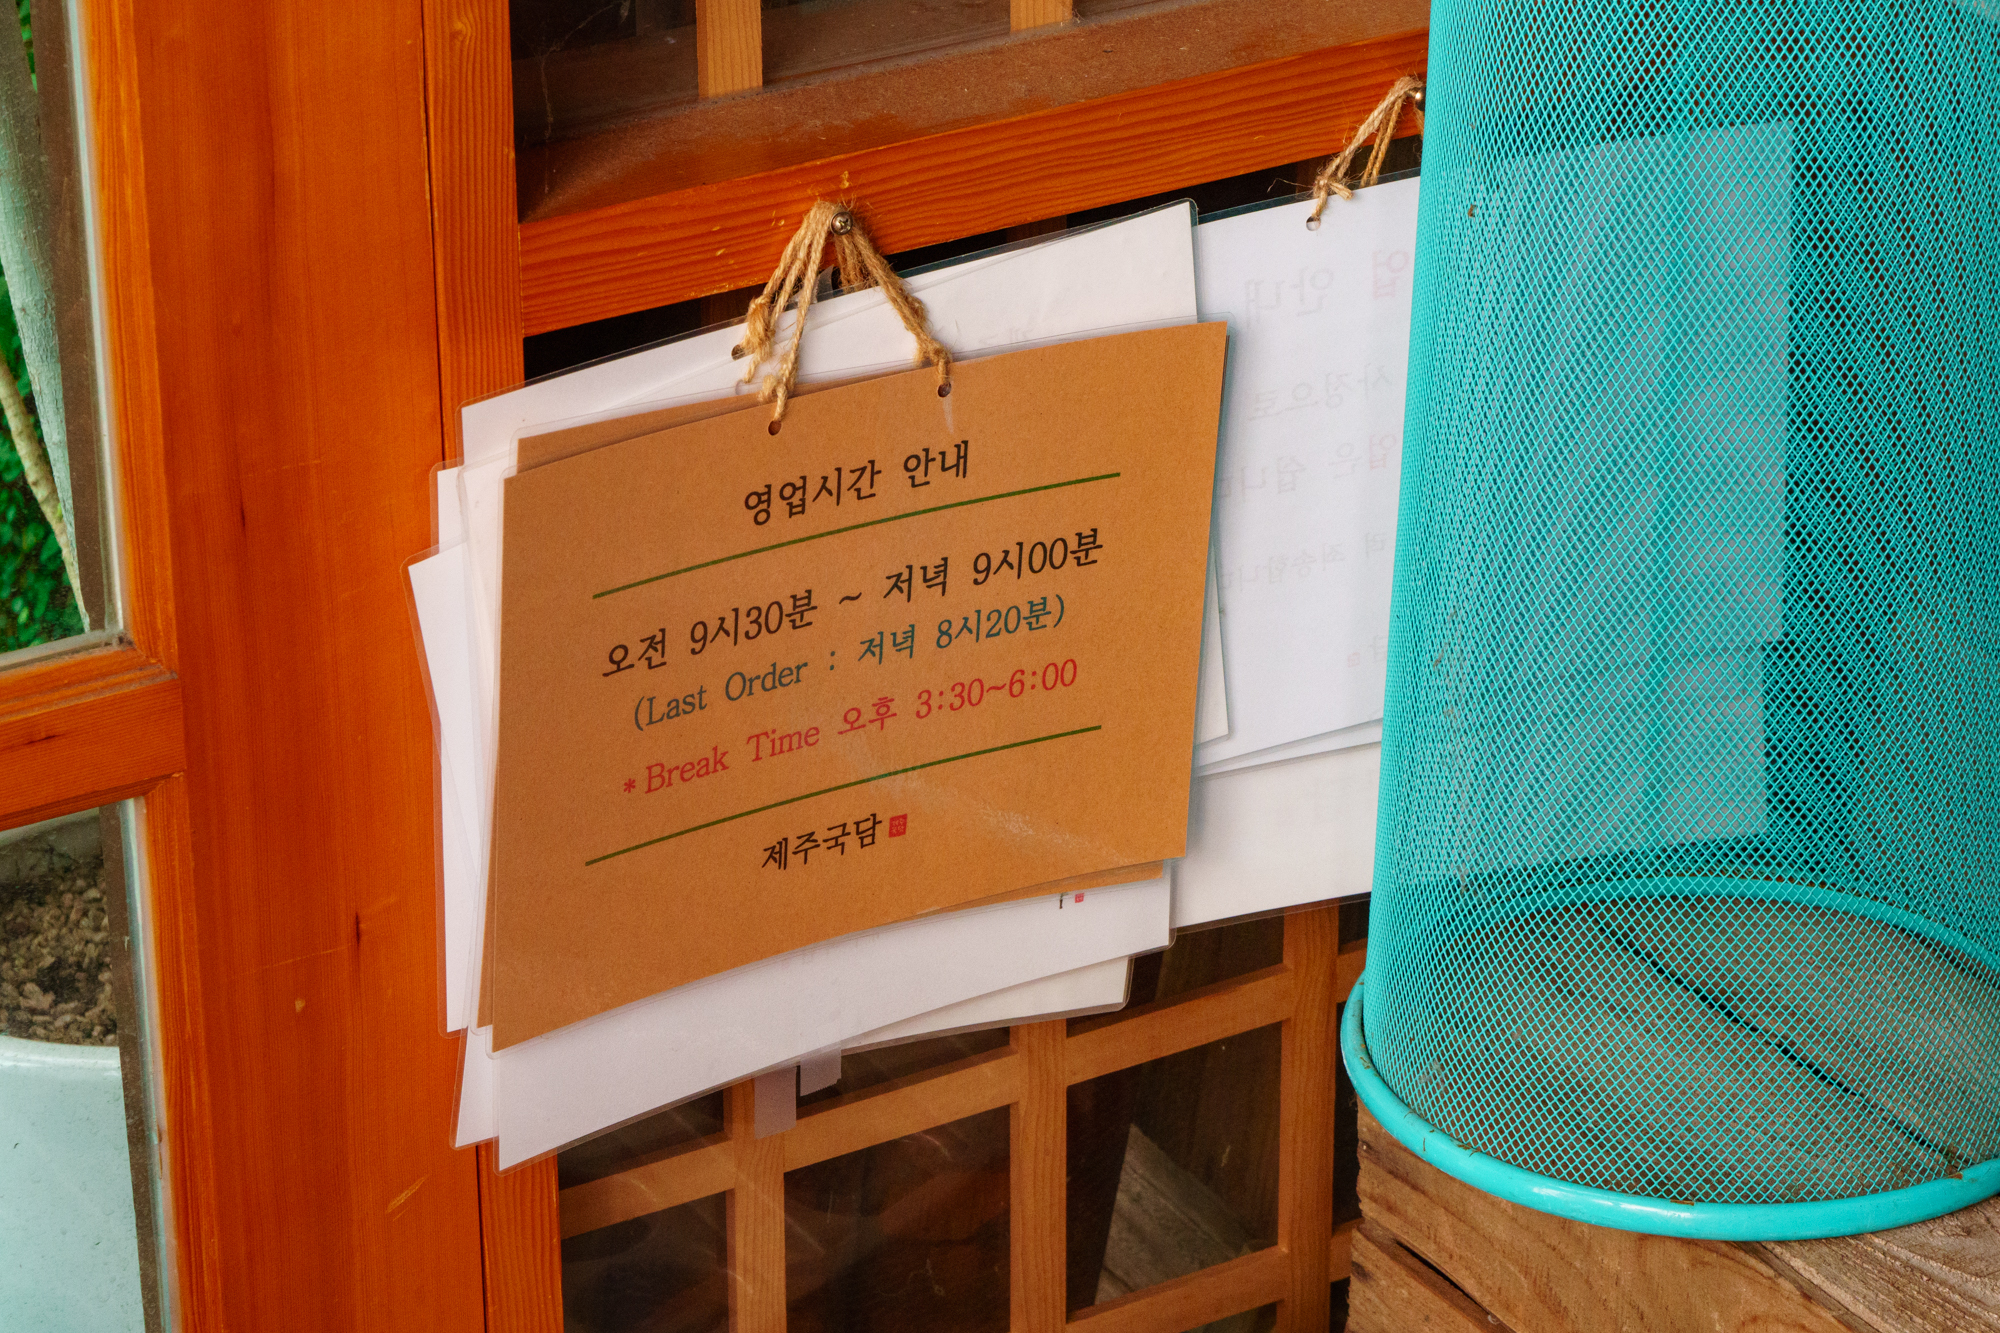 영업시간 안내
오전 9시30분 ~ 저녁 9시00분
(Last Order : 저녁 8시20분)
*Break Time 오후 3:30~6:00
제주국담
안내
사정으로
죄송합니다